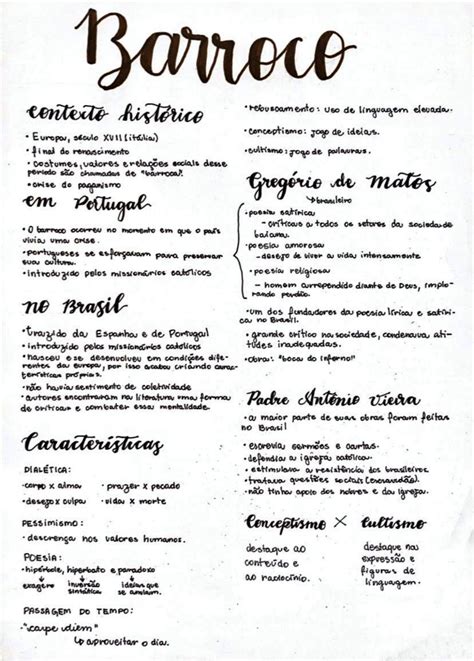 Barroco
contexto histórico
• Europa, século XVII (itália)
• final do renascimento
• costumes, valores e relações sociais desse
período são chamadas de "barrocal".
• crise do paganismo
em Portugal
• O barroco ocorreu no momento em que o país
vivia uma crise.
• portugueses se esforçavam para preservar
sua cultura.
• introduzido pelos missionários católicos
no Brasil
• trazido da Espanha e de Portugal
• introduzido pelos missionários católicos
• nasceu e se desenvolveu em condições dife-
rentes da europa, por isso acabou criando carac-
terísticas próprias.
• não havia sentimento de coletividade
• autores encontraram na literatura uma forma
de criticar e combater essa mentalidade.
Características
DIALÉTICA:
• corpo x alma • prazer x pecado
• desejo x culpa • vida x morte
PESSIMISMO:
• descrença nos valores humanos.
POESIA:
• hipérbole, hiperbato e paradoxo
exagero inversão sintática ideias que se anulam.
PASSAGEM DO TEMPO:
• "carpe diem"
↳ aproveitar o dia.
• rebuscamento: uso de linguagem elevada.
• conceptismo: jogo de ideias.
• cultismo: jogo de palavras.
Gregório de Matos
↳ brasileiro
• poesia satírica
- críticas a todos os setores da sociedade
baiana.
• poesia amorosa
- desejo de viver a vida intensamente
• poesia religiosa
- homem arrependido diante de Deus, implo-
rando perdão.
• um dos fundadores da poesia lírica e satíri-
ca no Brasil.
• grande crítico na sociedade, condenava ati-
tudes inadequadas.
• obra: "boca do inferno"
Padre Antônio Vieira
• a maior parte de suas obras foram feitas
no Brasil
• escrevia sermões e cartas.
• defendia a igreja católica.
• estimulava a resistência dos brasileiros.
• tratava questões sociais (escravidão).
• não tinha apoio dos nobres e da igreja.
Conceptismo X Cultismo
destaque ao
conteúdo e
ao raciocínio.
destaque na
expressão e
figuras de
linguagem.